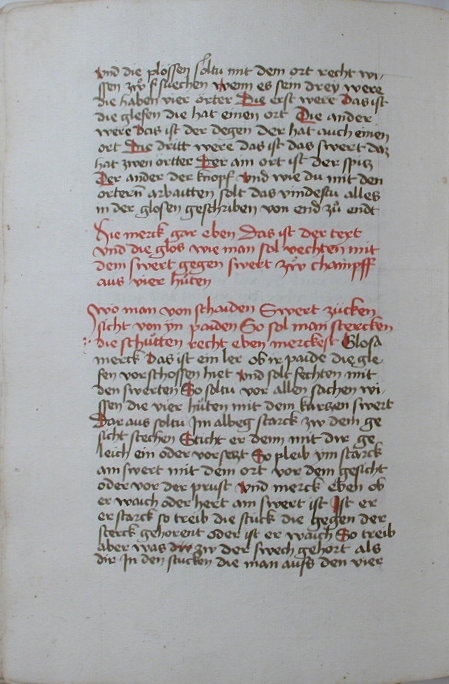 vnd die plossen soltu mit dem ort recht wi
ssen zw suechen wenn es sein drey were
die haben vier örter Die erst were das ist
die glefen die hat einen ort Die ander
were das ist der degen der hat auch einen
ort Die dritt were das ist das swert daz
hat zwen ortter Der ain ort ist der spitz
Der ander der knopf vnd wie du mit den
ortern arbaitten solt das vindestu alles
in der glosen geschriben von end zu endt
Hie merck gar eben Das ist der text
vnd die glos wie man sol vechten mit
dem swert gegen swert zw champff
aus vier hüten
Wo man von schaiden Swert zücken
sicht von yn paiden So sol man stercken
die schutten recht eben mercken Glosa
merck Das ist ein ler ob ir paide die gle
fen vorschossen hiet vnd solt fechten mit
den swerten So soltu vor allen sachen wi
ssen die vier hüten mit dem kurczen swert
Dar aus soltu Im albeg starck zw dem ge
sicht stechen Sticht er denn mit dir ge
leich ein oder vorsetzt So pleib ym starck
am swert mit dem ort vor dem gesicht
oder vor der prust Vnd merck eben ob
er waich oder hert am swert ist Ist er
er starck so treib die stuck die gegen der
sterck gehorent oder ist er waich So treib
aber was zw der swech gehört als
dir In den stucken die man aufs den vier